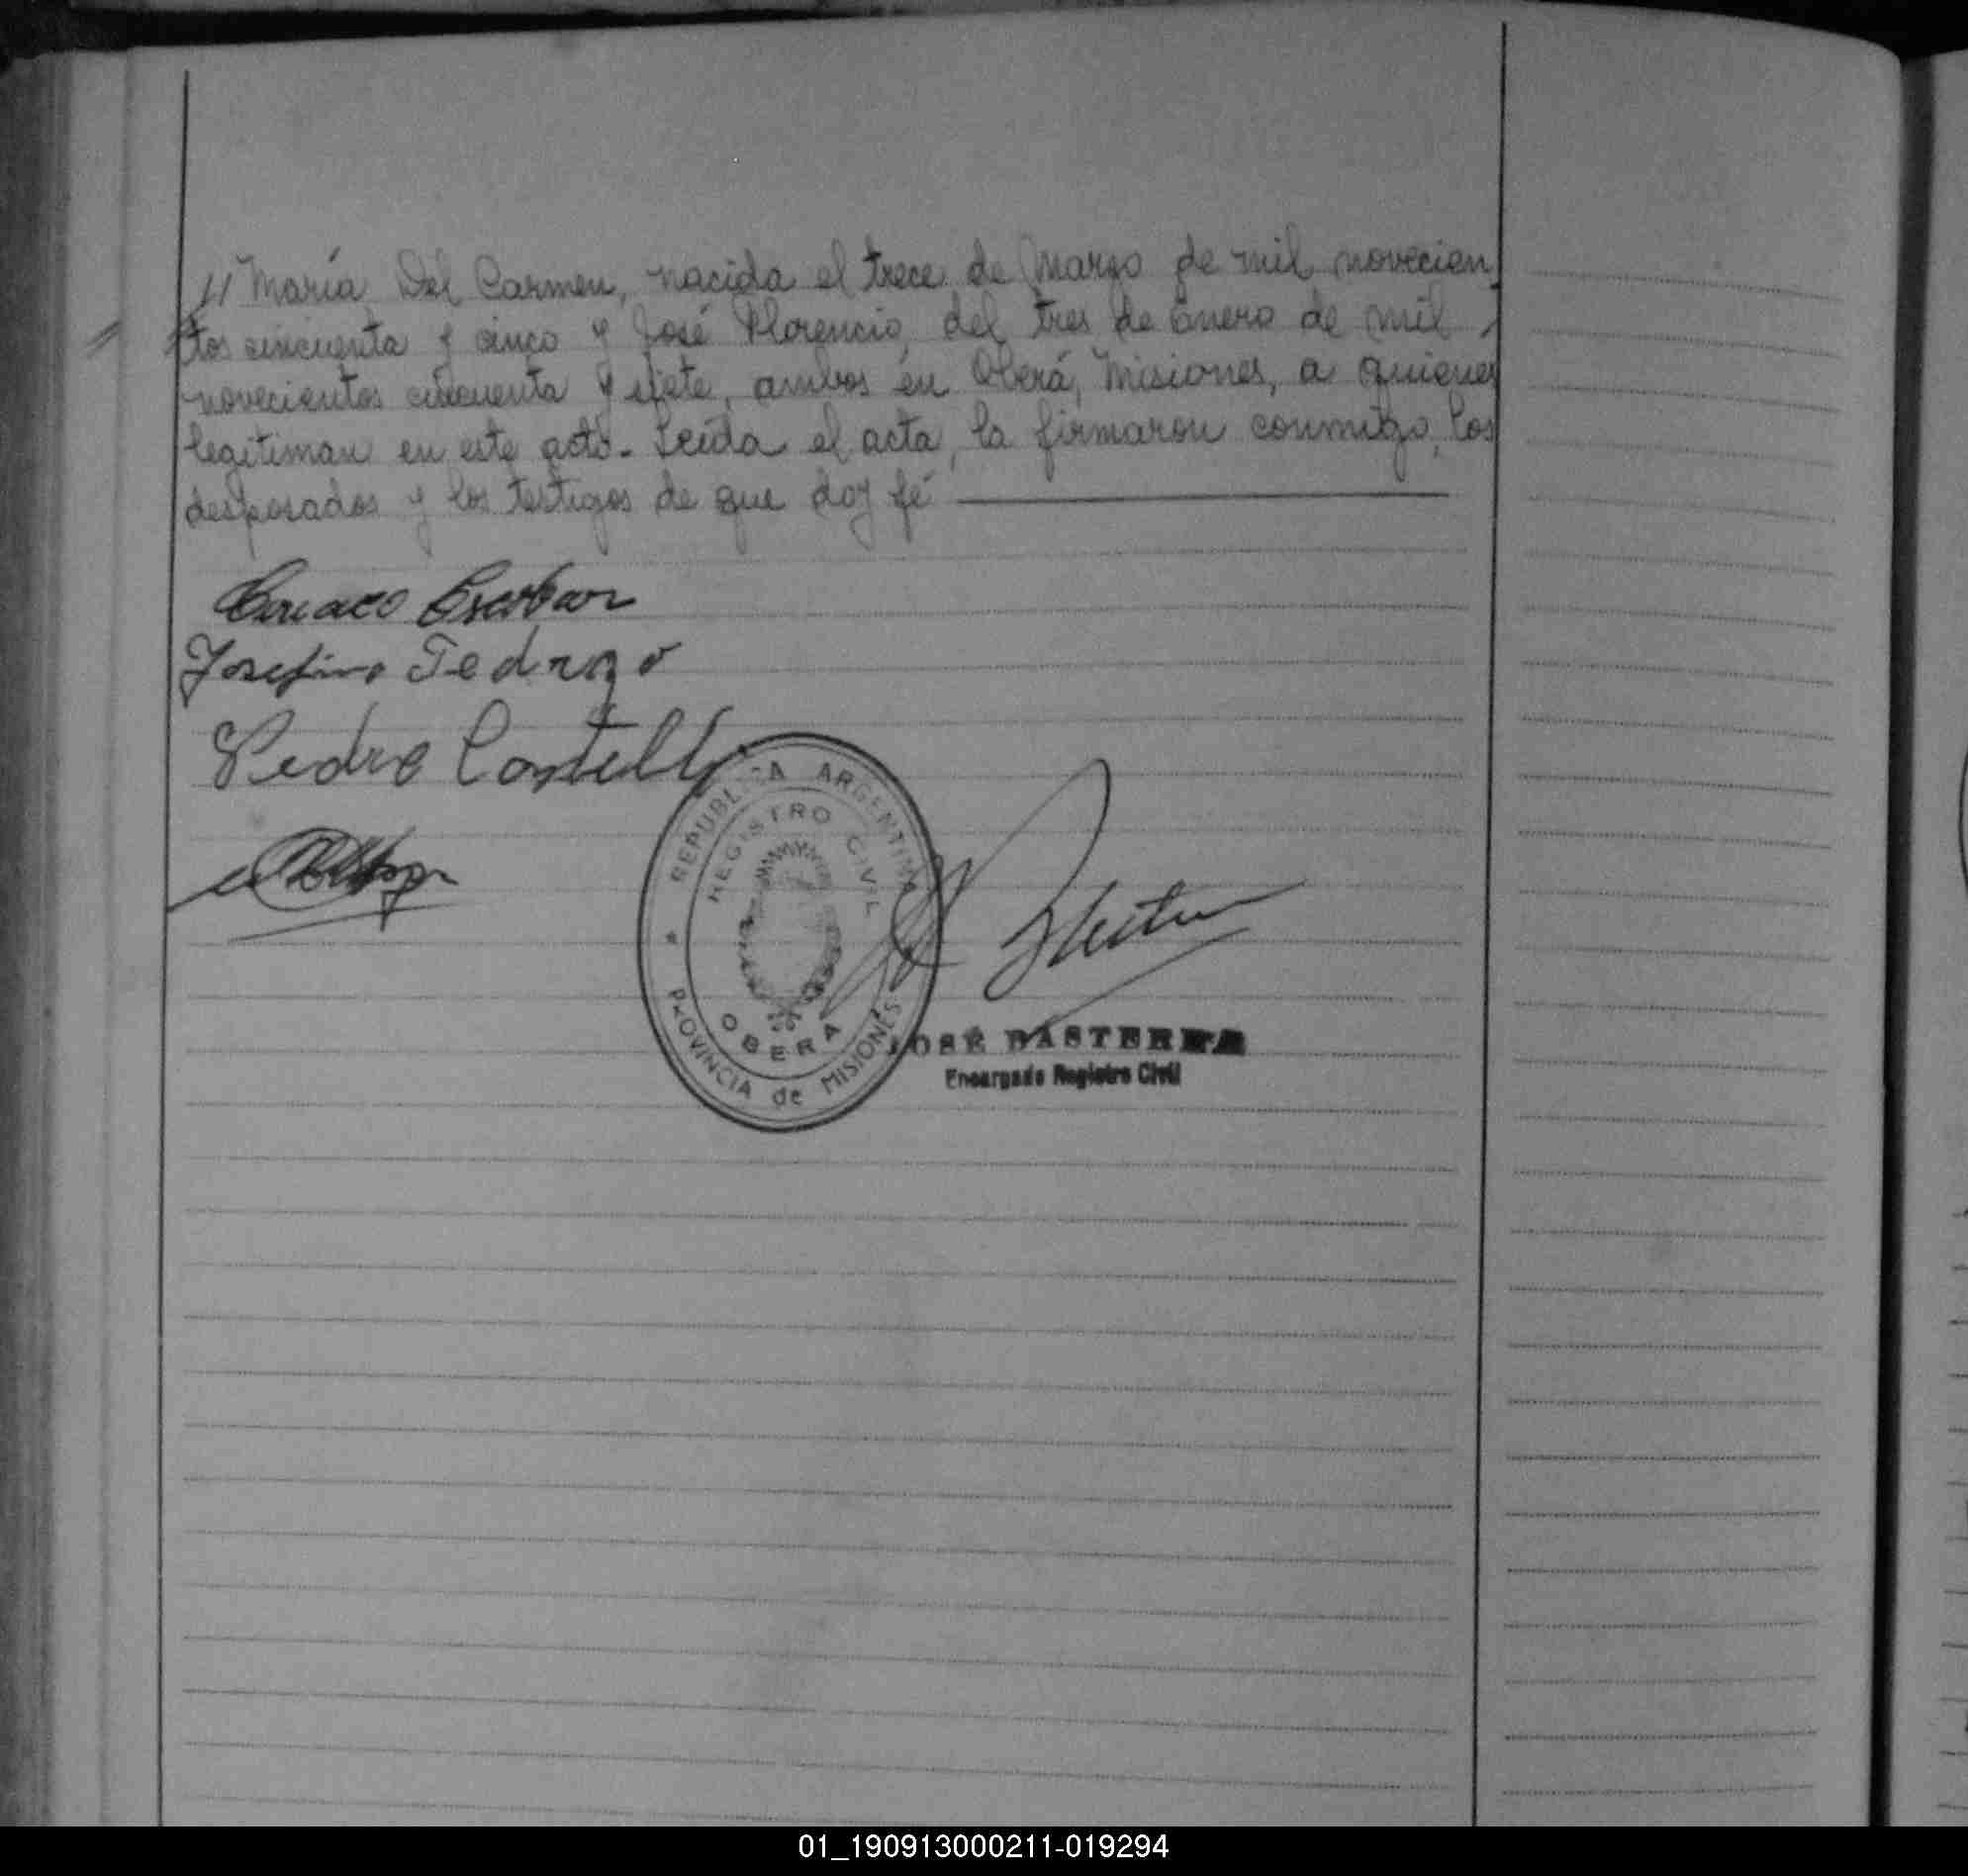 // María Del Carmen, nacida el trece de Marzo de mil novecien
tos cincuenta y cinco y José Florencio, del tres de Enero de mil
novecientos cincuenta y siete, ambos en Oberá, Misiones, a quienes
legitiman en este acto. Leída el acta, la firmaron conmigo, los
desposados y los testigos de que doy fé
Escobar
Josefina
Pedro Castelli
REPUBLICA ARGENTINA
REGISTRO CIVIL
OBERA
PROVINCIA de MISIONES
JOSÉ BASTERRA
Encargado Registro Civil
01_190913000211-019294